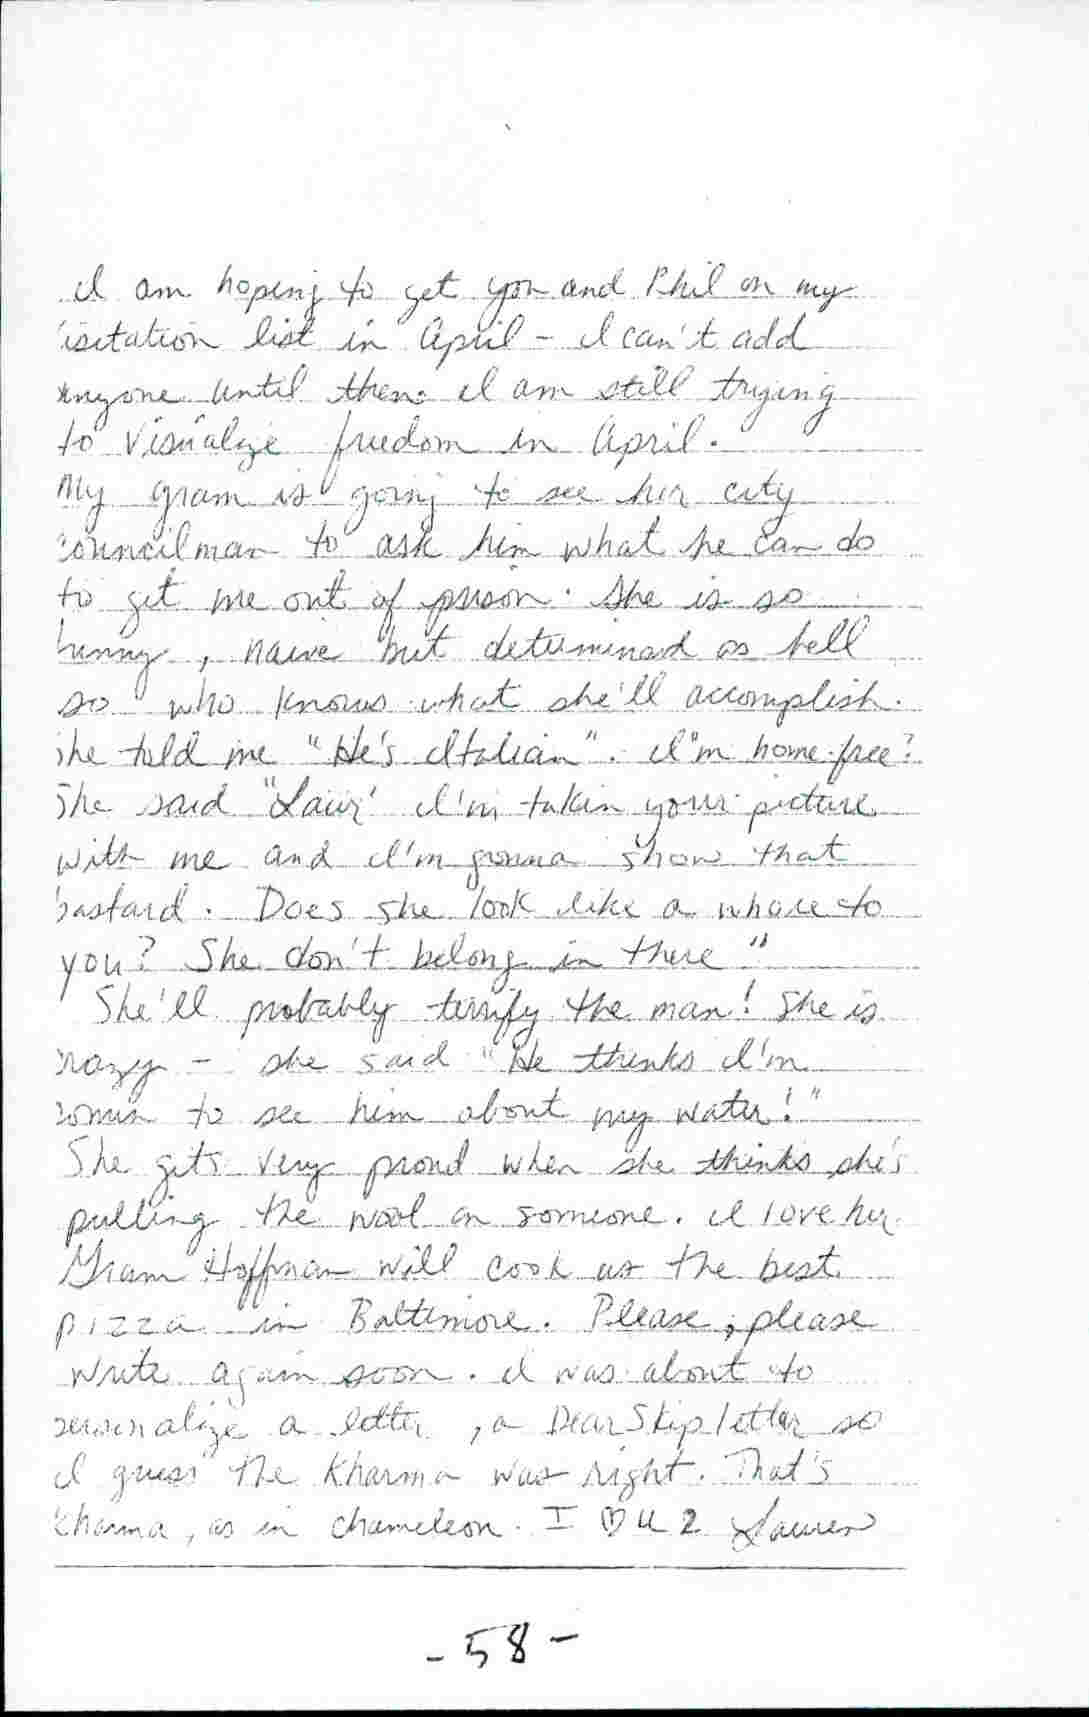 I am hoping to get you and Phil on my
isitation list in April - I can't add
anyone until then. I am still trying
to visualize freedom in April.
My gram is going to see her city
councilman to ask him what he can do
to get me out of prison. She is so
funny, naive but determined as hell
so who knows what she'll accomplish.
She told me "He's Italian". I'm home-free?
She said "Laur' I'm takin your picture
with me and I'm gonna show that
bastard. Does she look like a whore to
you? She don't belong in there"
She'll probably terrify the man! She is
crazy - she said "He thinks I'm
comin to see him about my water!"
She gets very proud when she thinks she's
pulling the wool on someone. I love her.
Gram Hoffman will cook us the best
pizza in Baltimore. Please, please
write again soon. I was about to
a letter, a Dear Skip letter so
I guess the Kharma was right. That's
Kharma, as in chameleon. I ♡ U 2 Lauren
- 58 -